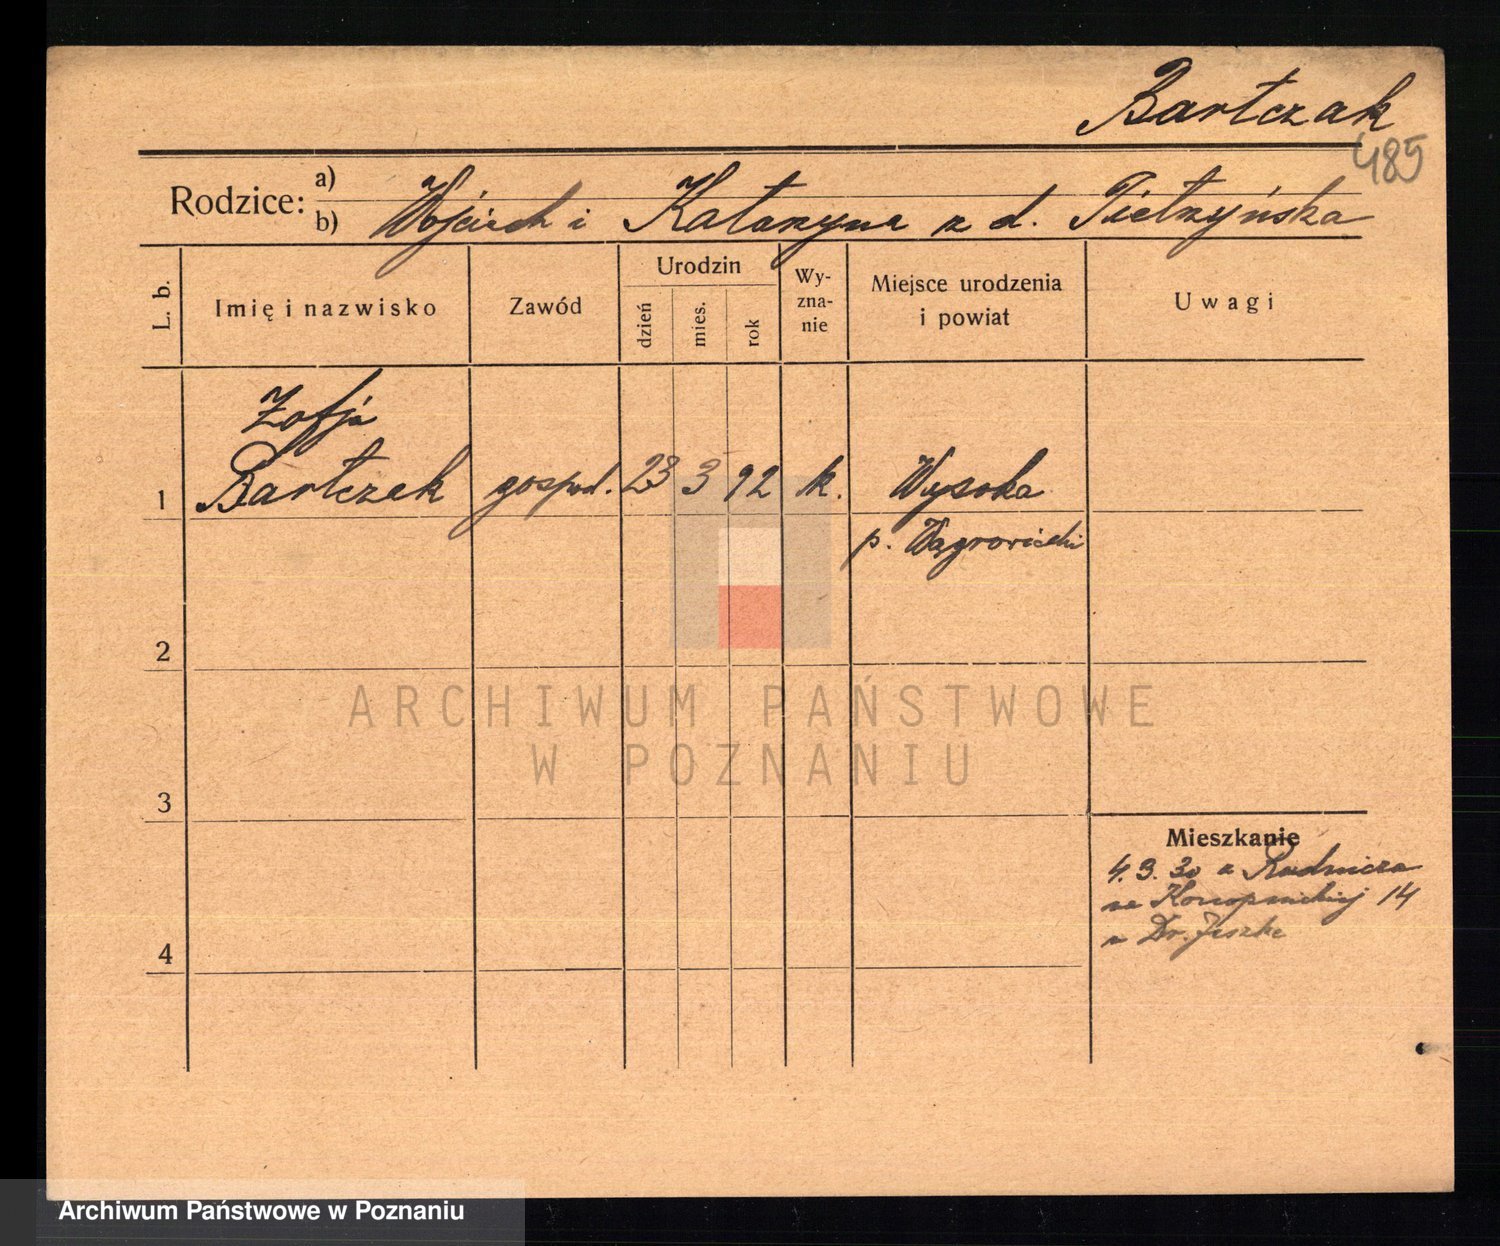 Bartczak
485
Rodzice: a)
b) Wojciech i Katarzyna z d. Pietrzyńska
L. b.
Imię i nazwisko
Zawód
Urodzin
dzień
mies.
rok
Wy-
zna-
nie
Miejsce urodzenia
i powiat
Uwagi
Zofja
1 Bartczak gospod. 23 3 92 k. Wysoka
p. Wągrowiecki
2
ARCHIWUM PAŃSTWOWE
W POZNANIU
3
Mieszkanie
4. 3. 30 z Rudnicza
na Konopnickiej 14
Dr. Jeszke
4
Archiwum Państwowe w Poznaniu